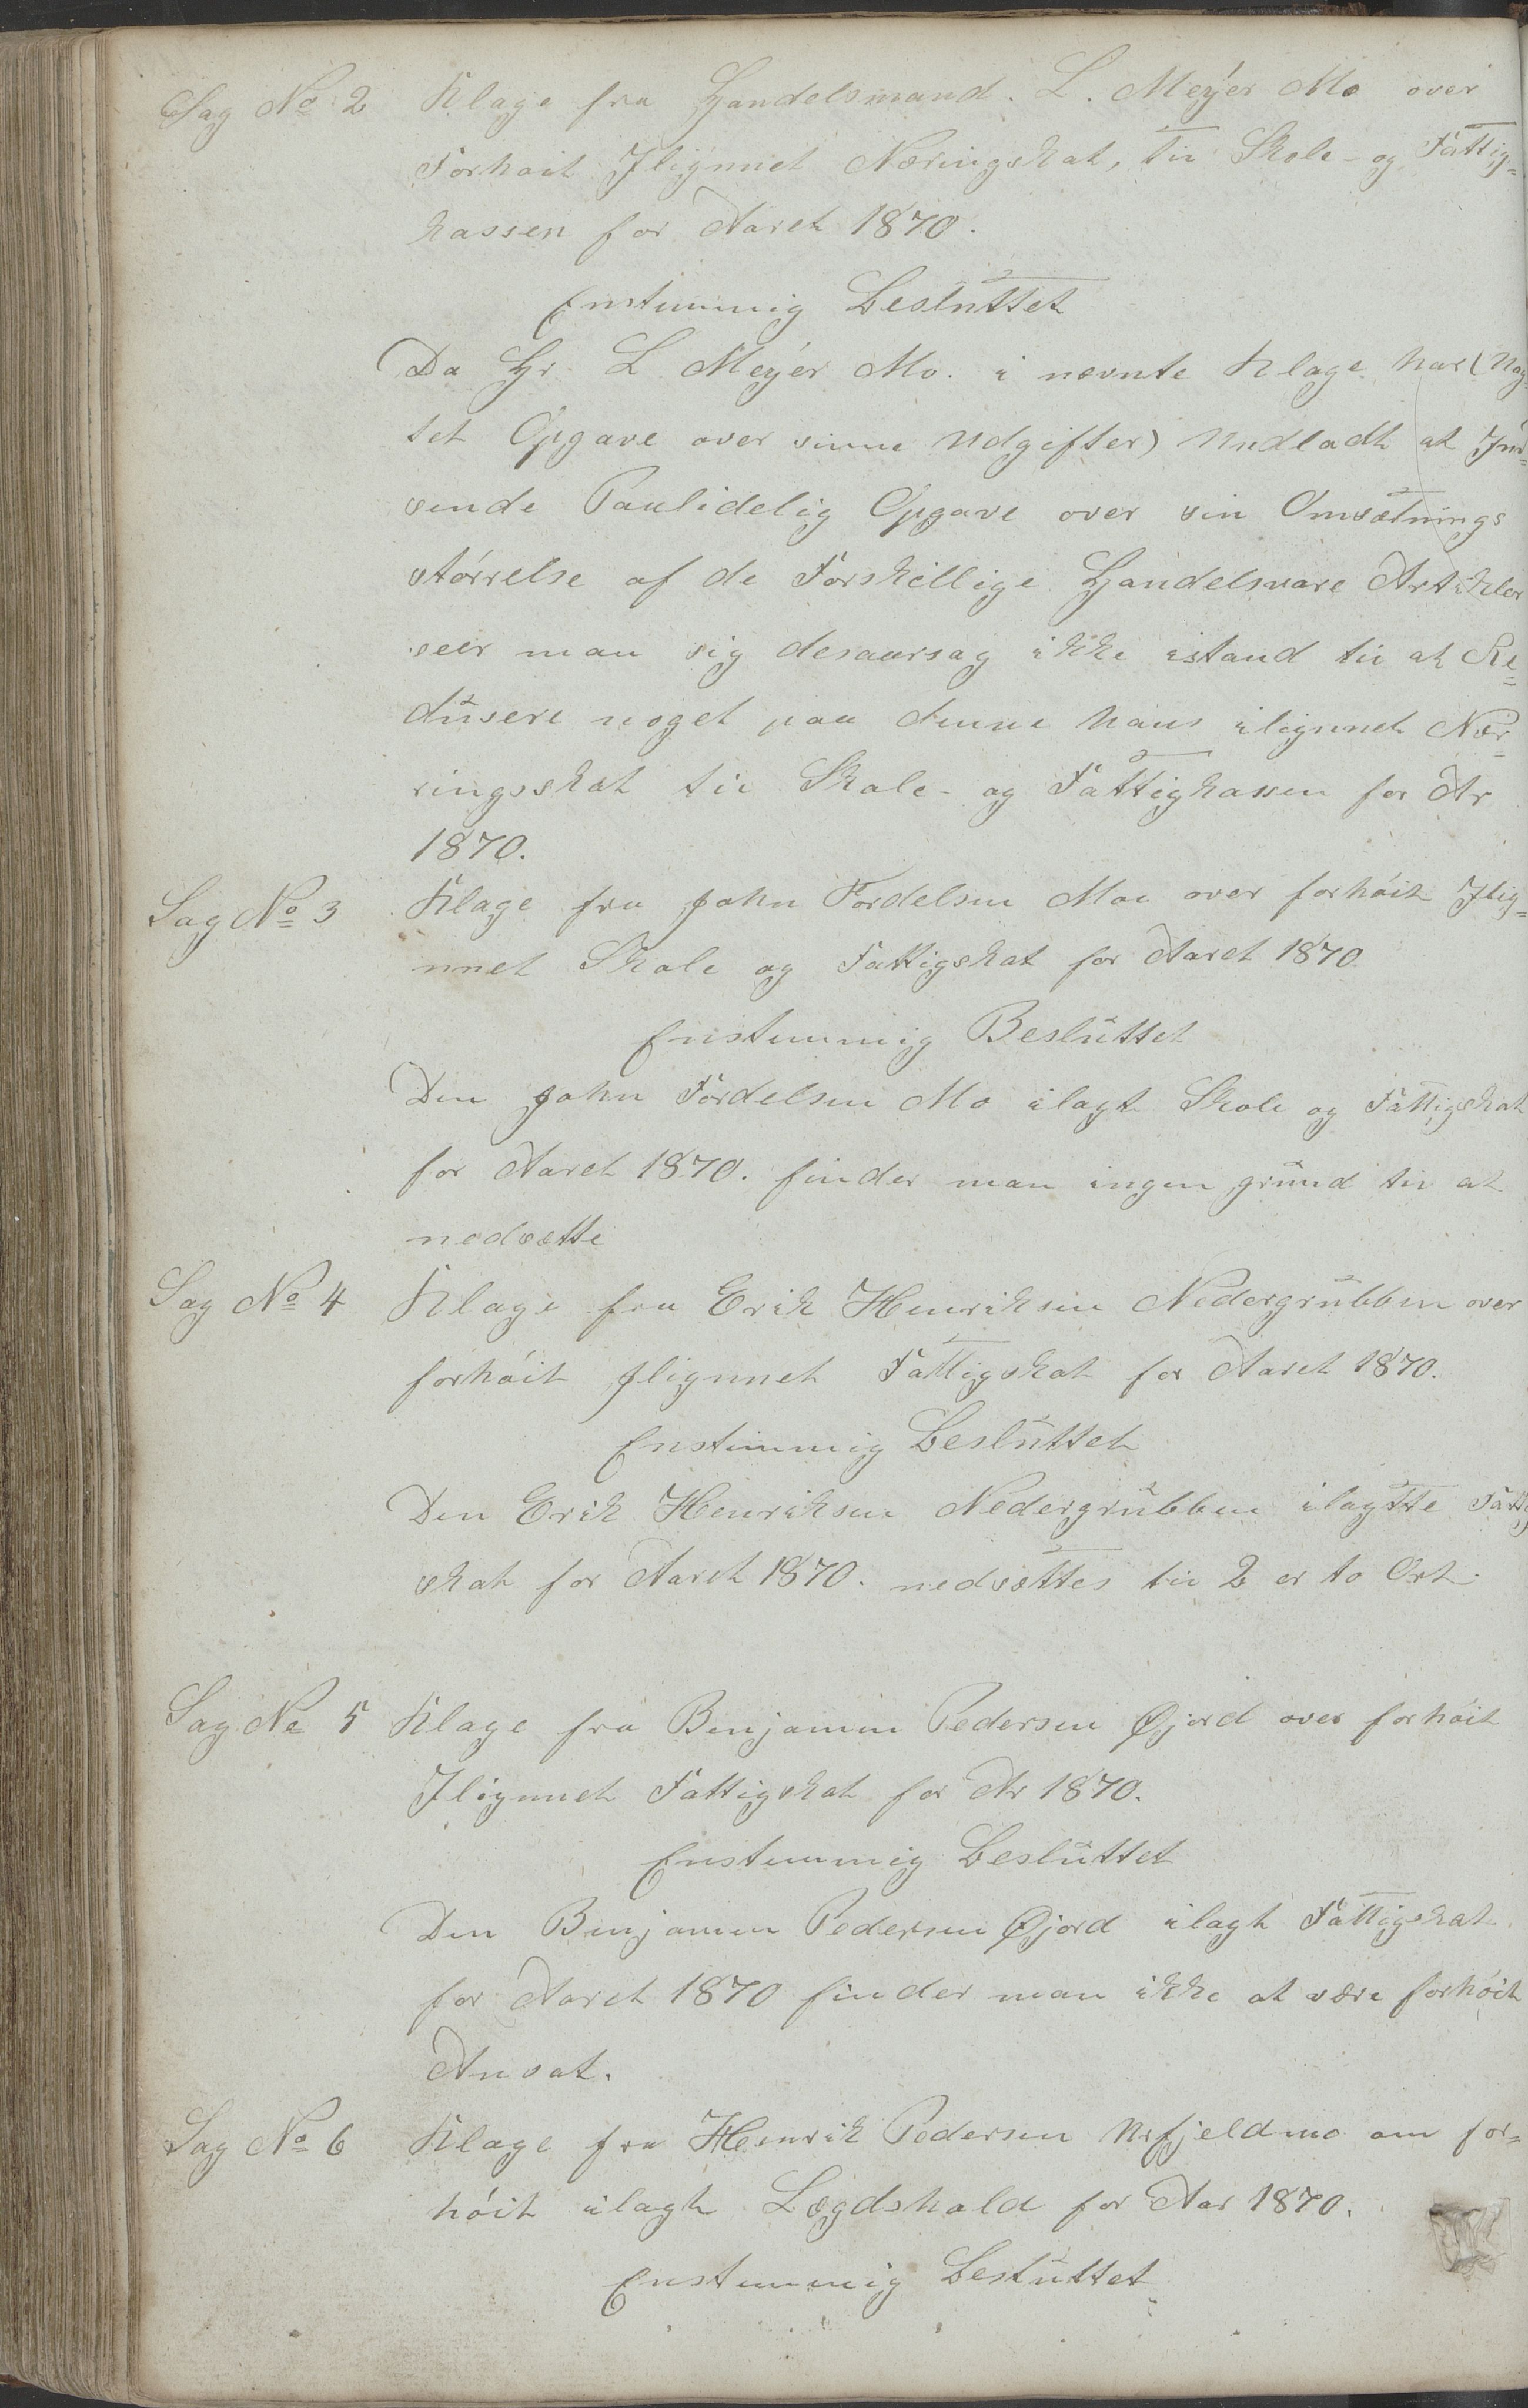 Sag No 2 Klage fra Handelsmand. L. Meyer Mo over
Forhøit Ilignnet Næringskat, til Skole- og Fattig-
kassen for Aaret 1870.
Enstemmig Besluttet
Da Hr. L Meyer Mo. i nevnte Klage har (Nog-
tet Opgave over sinne Udgifter) Undladt at Ind-
sende Paalidelig Opgave over sin Omsætnings
størrelse af de Forskellige Handelsvare Artikler
seer man sig desaarsag ikke istand til at Re-
dusere noget paa denne hans ilignnet Næ-
ringsskat til Skole- og Fattigkassen for Ar
1870.
Sag No 3 Klage fra John Tordelsen Moe over forhøit Ilig-
nnet Skole og Fattigskat for Aaret 1870
Enstemmig Besluttet
Den John Tordelsen Mo ilagt Skole og Fattigskat
for Aaret 1870. finder man ingen grund til at
nedsætte
Sag No 4 Klage fra Erik Henriksen Nedergrubben over
forhøit Ilignnet Fattigskat for Aaret 1870.
Enstemmig Besluttet
Den Erik Henriksen Nedergrubben ilagtte Fattig
skat for Aaret 1870. nedsættes til 2 er to Ort.
Sag No 5 Klage fra Benjamin Pedersen Øjord over forhøit
Ilignnet Fattigskat for Ar 1870.
Enstemmig Besluttet
Den Benjamin Pedersen Øjord ilagt Fattigskat
for Aaret 1870 finder man ikke at være forhøit
Ansat.
Sag No 6 Klage fra Henrik Pedersen Urfjeldmo om for-
høit ilagt Lægdshold for Aar 1870.
Enstemmig Besluttet